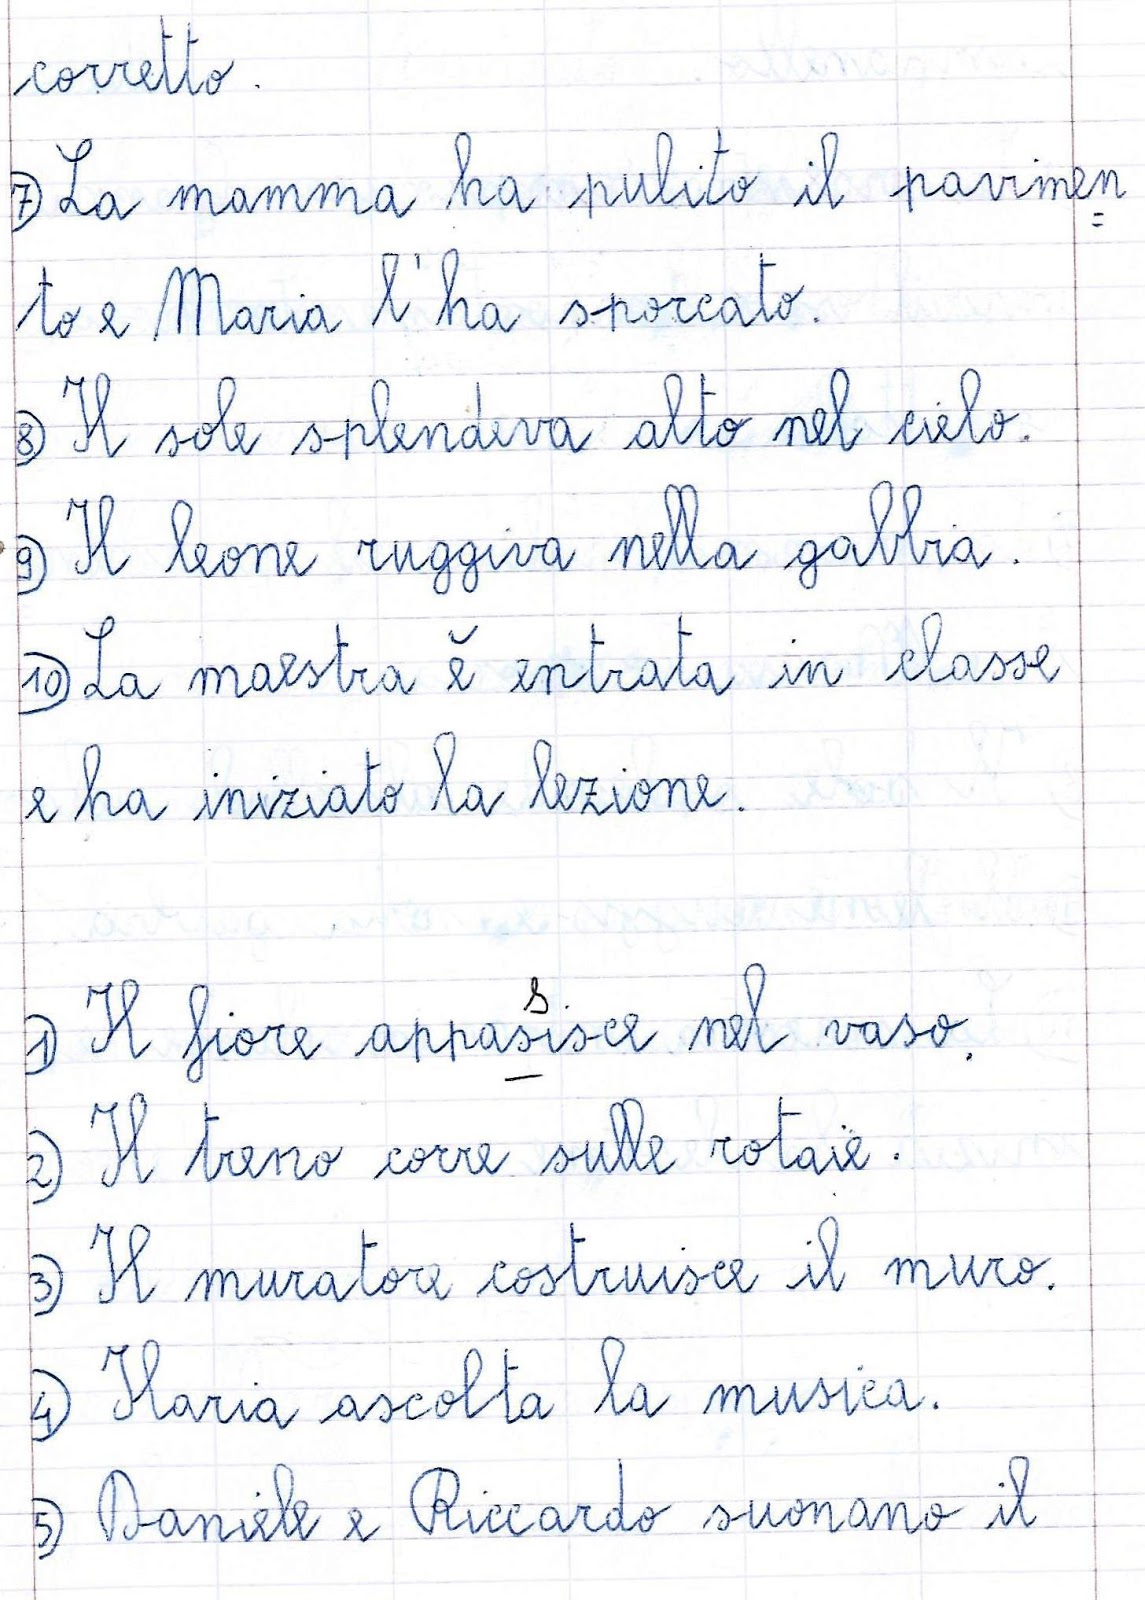 corretto.
7) La mamma ha pulito il pavimen=
to e Maria l'ha sporcato.
8) Il sole splendeva alto nel cielo.
9) Il leone ruggiva nella gabbia.
10) La maestra è entrata in classe
e ha iniziato la lezione.
s
1) Il fiore appasisce nel vaso.
2) Il treno corre sulle rotaie.
3) Il muratore costruisce il muro.
4) Ilaria ascolta la musica.
5) Daniele e Riccardo suonano il